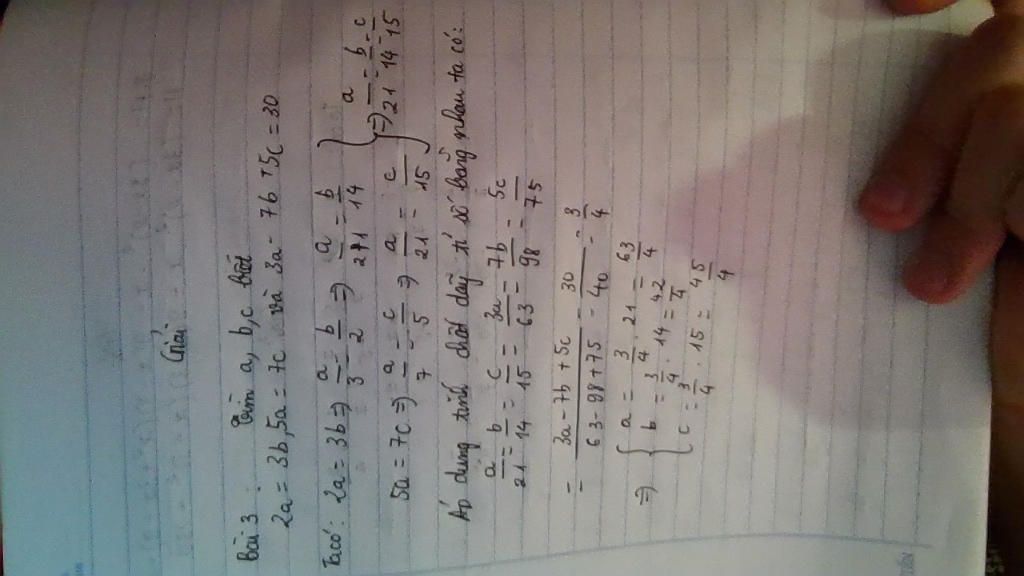 Giải
Bài 3: Tìm a, b, c biết
2a = 3b, 5a = 7c và 3a - 7b + 5c = 30
Ta có: 2a = 3b ⇒ a/3 = b/2 ⇒ a/21 = b/14
5a = 7c ⇒ a/7 = c/5 ⇒ a/21 = c/15 } ⇒ a/21 = b/14 = c/15
Áp dụng tính chất dãy tỉ số bằng nhau ta có:
a/21 = b/14 = c/15 = 3a/63 = 7b/98 = 5c/75
= (3a - 7b + 5c)/(63 - 98 + 75) = 30/40 = 3/4
⇒ { a = 3/4 . 21 = 63/4
b = 3/4 . 14 = 42/4
c = 3/4 . 15 = 45/4